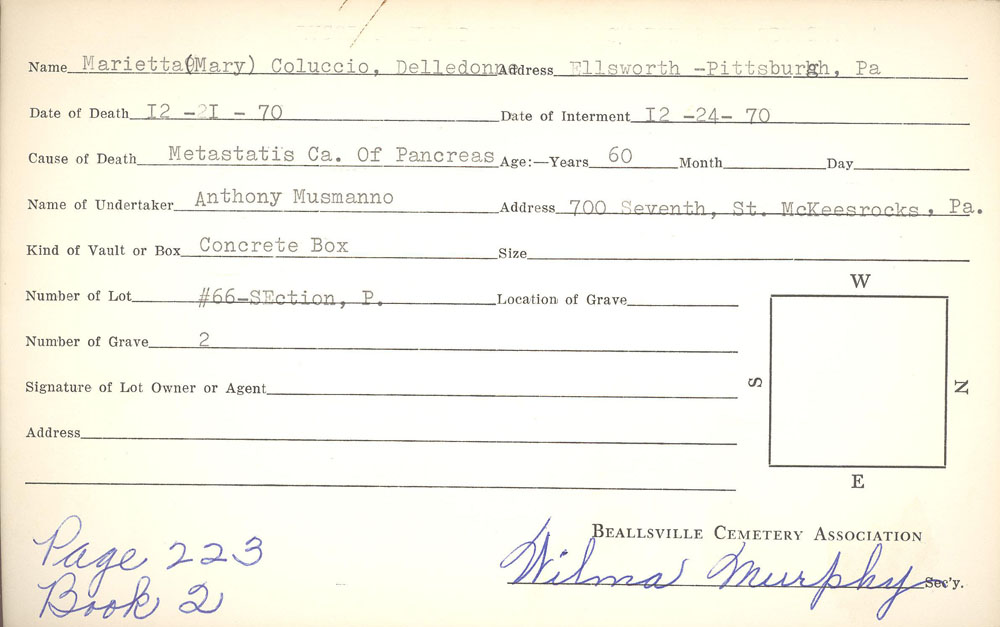 Name Marietta(Mary) Coluccio, Delledonne Address Ellsworth -Pittsburgh, Pa
Date of Death I2 -2I - 70 Date of Interment I2 -24- 70
Cause of Death Metastatis Ca. Of Pancreas Age:—Years 60 Month Day
Name of Undertaker Anthony Musmanno Address 700 Seventh, St. McKeesrocks, Pa.
Kind of Vault or Box Concrete Box Size
Number of Lot #66-SEction, P. Location of Grave
Number of Grave 2
Signature of Lot Owner or Agent
Address
W
S
N
E
Beallsville Cemetery Association
Wilma Murphy Sec'y.
Page 223
Book 2